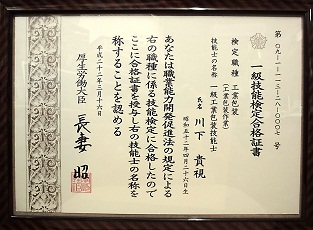 第〇九-一-一三-二八-〇〇〇七号
一級技能検定合格証書
検定職種 工業包装
(工業包装作業)
技能士の名称 一級工業包装技能士
氏名 川下 貴視
昭和五十二年四月二十六日生
あなたは職業能力開発促進法の規定による
右の職種に係る技能検定に合格したので
ここに合格証書を授与し右の技能士の名称を
称することを認める
平成二十二年三月十六日
厚生労働大臣 長妻 昭